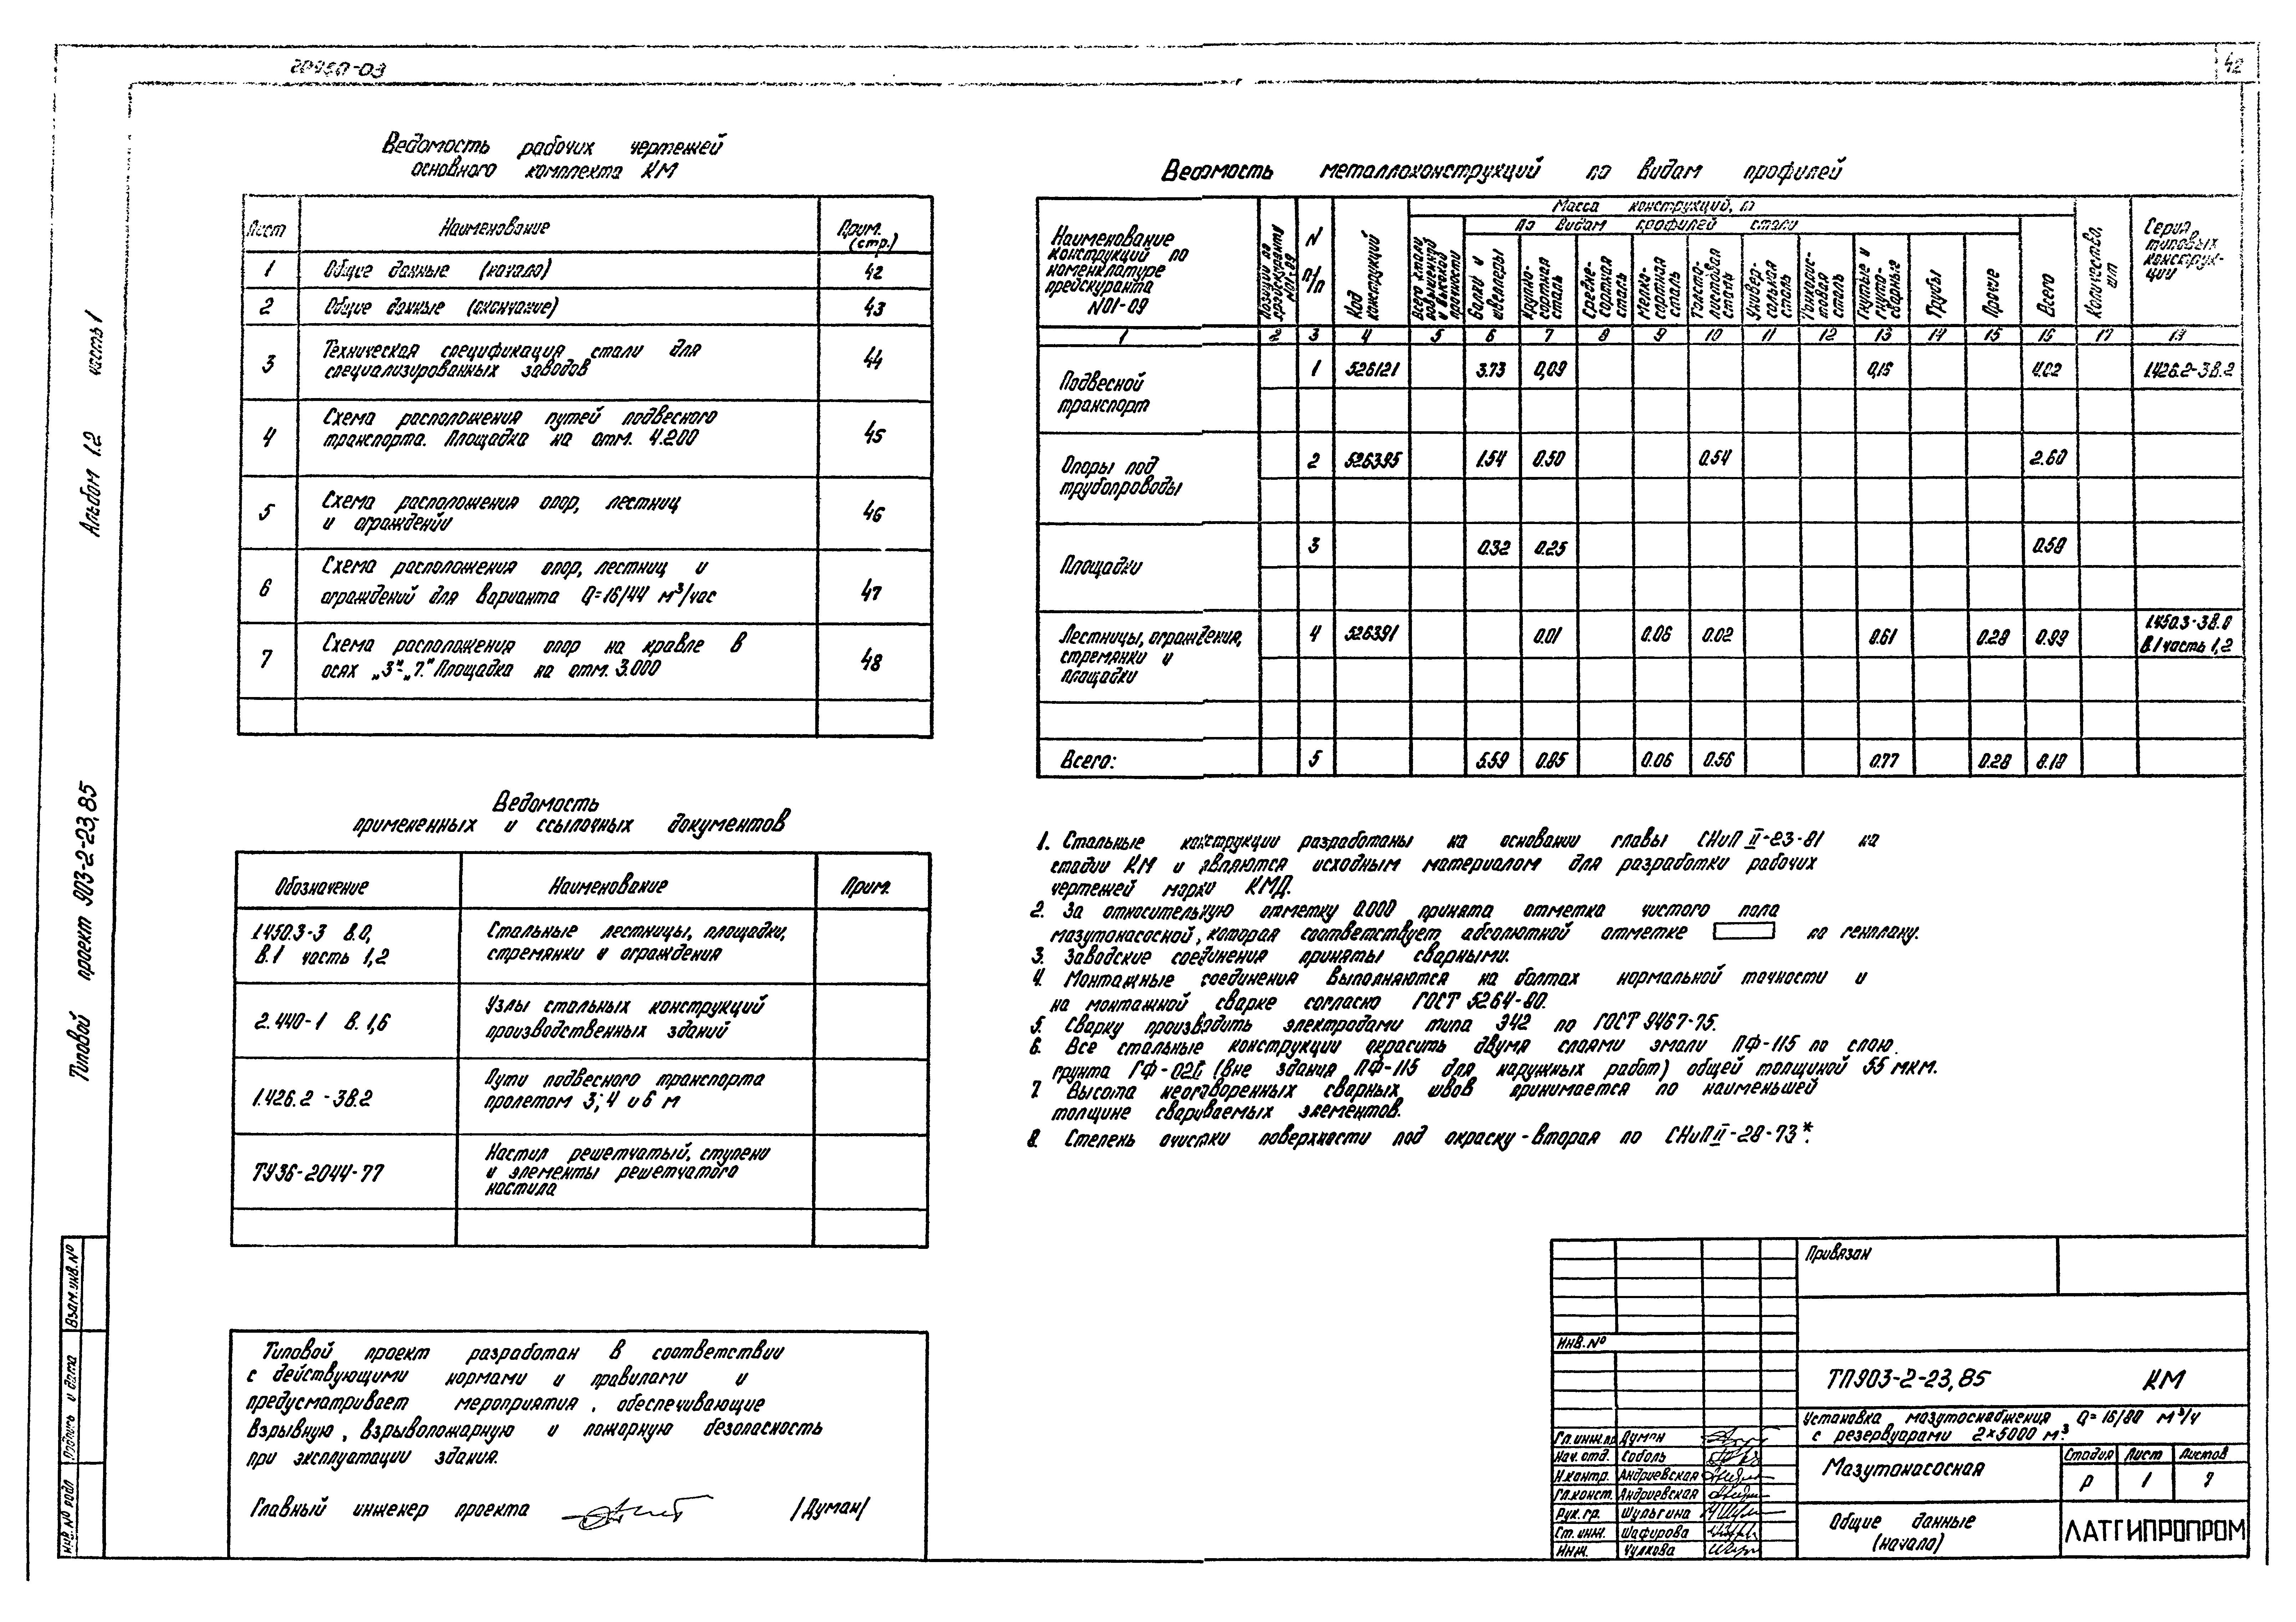 20450-03
42
Альбом 1.2 часть 1
Типовой проект 903-2-23,85
Взам. инв. №
Подпись и дата
Инв. № подл
Ведомость рабочих чертежей
основного комплекта КМ
Лист Наименование Прим. (стр.)
1 Общие данные (начало) 42
2 Общие данные (окончание) 43
3 Техническая спецификация стали для
специализированных заводов 44
4 Схема расположения путей подвесного
транспорта. Площадка на отм. 4.200 45
5 Схема расположения опор, лестниц
и ограждений 46
6 Схема расположения опор, лестниц и
ограждений для варианта Q=16/44 м³/час 47
7 Схема расположения опор на кровле в
осях „3"-„7." Площадка на отм. 3.000 48
Ведомость
примененных и ссылочных документов
Обозначение Наименование Прим.
1.450.3-3 В.0,
В.1 часть 1,2
Стальные лестницы, площадки,
стремянки и ограждения
2.440-1 В. 1,6
Узлы стальных конструкций
производственных зданий
1.426.2-3В.2
Пути подвесного транспорта
пролетом 3; 4 и 6 м
ТУ36-2044-77
Настил решетчатый, ступени
и элементы решетчатого
настила
Типовой проект разработан в соответствии
с действующими нормами и правилами и
предусматривает мероприятия, обеспечивающие
взрывную, взрывопожарную и пожарную безопасность
при эксплуатации здания.
Главный инженер проекта /Думан/
Ведомость металлоконструкций по видам профилей
Наименование
конструкций по
номенклатуре
прейскуранта
N01-09
Позиции по прейскуранту N01-09
N п/п
Код конструкций
Масса конструкций, т
Всего стали повышенной и высокой прочности
по видам профилей стали
Балки и швеллеры
Крупно-сортная сталь
Средне-сортная сталь
Мелко-сортная сталь
Толсто-листовая сталь
Универ-сальная сталь
Тонколис-товая сталь
Гнутые и гнуто-сварные
Трубы
Прочие
Всего
Количество, шт
Серия
типовых
конструк-
ций
1 2 3 4 5 6 7 8 9 10 11 12 13 14 15 16 17 18
Подвесной
транспорт
1 526121 3.73 0,09 0,16 4.02 1.426.2-3В.2
Опоры под
трубопроводы
2 526395 1.54 0.50 0.54 2.60
Площадки
3 0.32 0.25 0.58
Лестницы, ограждения,
стремянки и
площадки
4 526391 0.01 0.06 0.02 0.61 0.28 0.99
1.450.3-3В.0
В.1 часть 1,2
Всего: 5 5.59 0.85 0.06 0.56 0.77 0.28 8.19
1. Стальные конструкции разработаны на основании главы СНиП II-23-81 на
стадии КМ и являются исходным материалом для разработки рабочих
чертежей марки КМД.
2. За относительную отметку 0.000 принята отметка чистого пола
мазутонасосной, которая соответствует абсолютной отметке по генплану.
3. Заводские соединения приняты сварными.
4. Монтажные соединения выполняются на болтах нормальной точности и
на монтажной сварке согласно ГОСТ 5264-80.
5. Сварку производить электродами типа Э42 по ГОСТ 9467-75.
6. Все стальные конструкции окрасить двумя слоями эмали ПФ-115 по слою
грунта ГФ-020 (вне здания ПФ-115 для наружных работ) общей толщиной 55 мкм.
7. Высота неоговоренных сварных швов принимается по наименьшей
толщине свариваемых элементов.
8. Степень очистки поверхности под окраску - вторая по СНиП II-28-73*.
Привязан
Инв. №
ТП903-2-23,85 КМ
Установка мазутоснабжения Q=16/80 м³/ч
с резервуарами 2×5000 м³
Гл. инж. пр Думан
Нач. отд. Соболь
Н.контр. Андриевская
Гл.конст. Андриевская
Рук. гр. Шульгина
Ст. инж. Шафирова
Инж. Чулкова
Мазутонасосная
Стадия Лист Листов
Р 1 7
Общие данные
(начало)
ЛАТГИПРОПРОМ